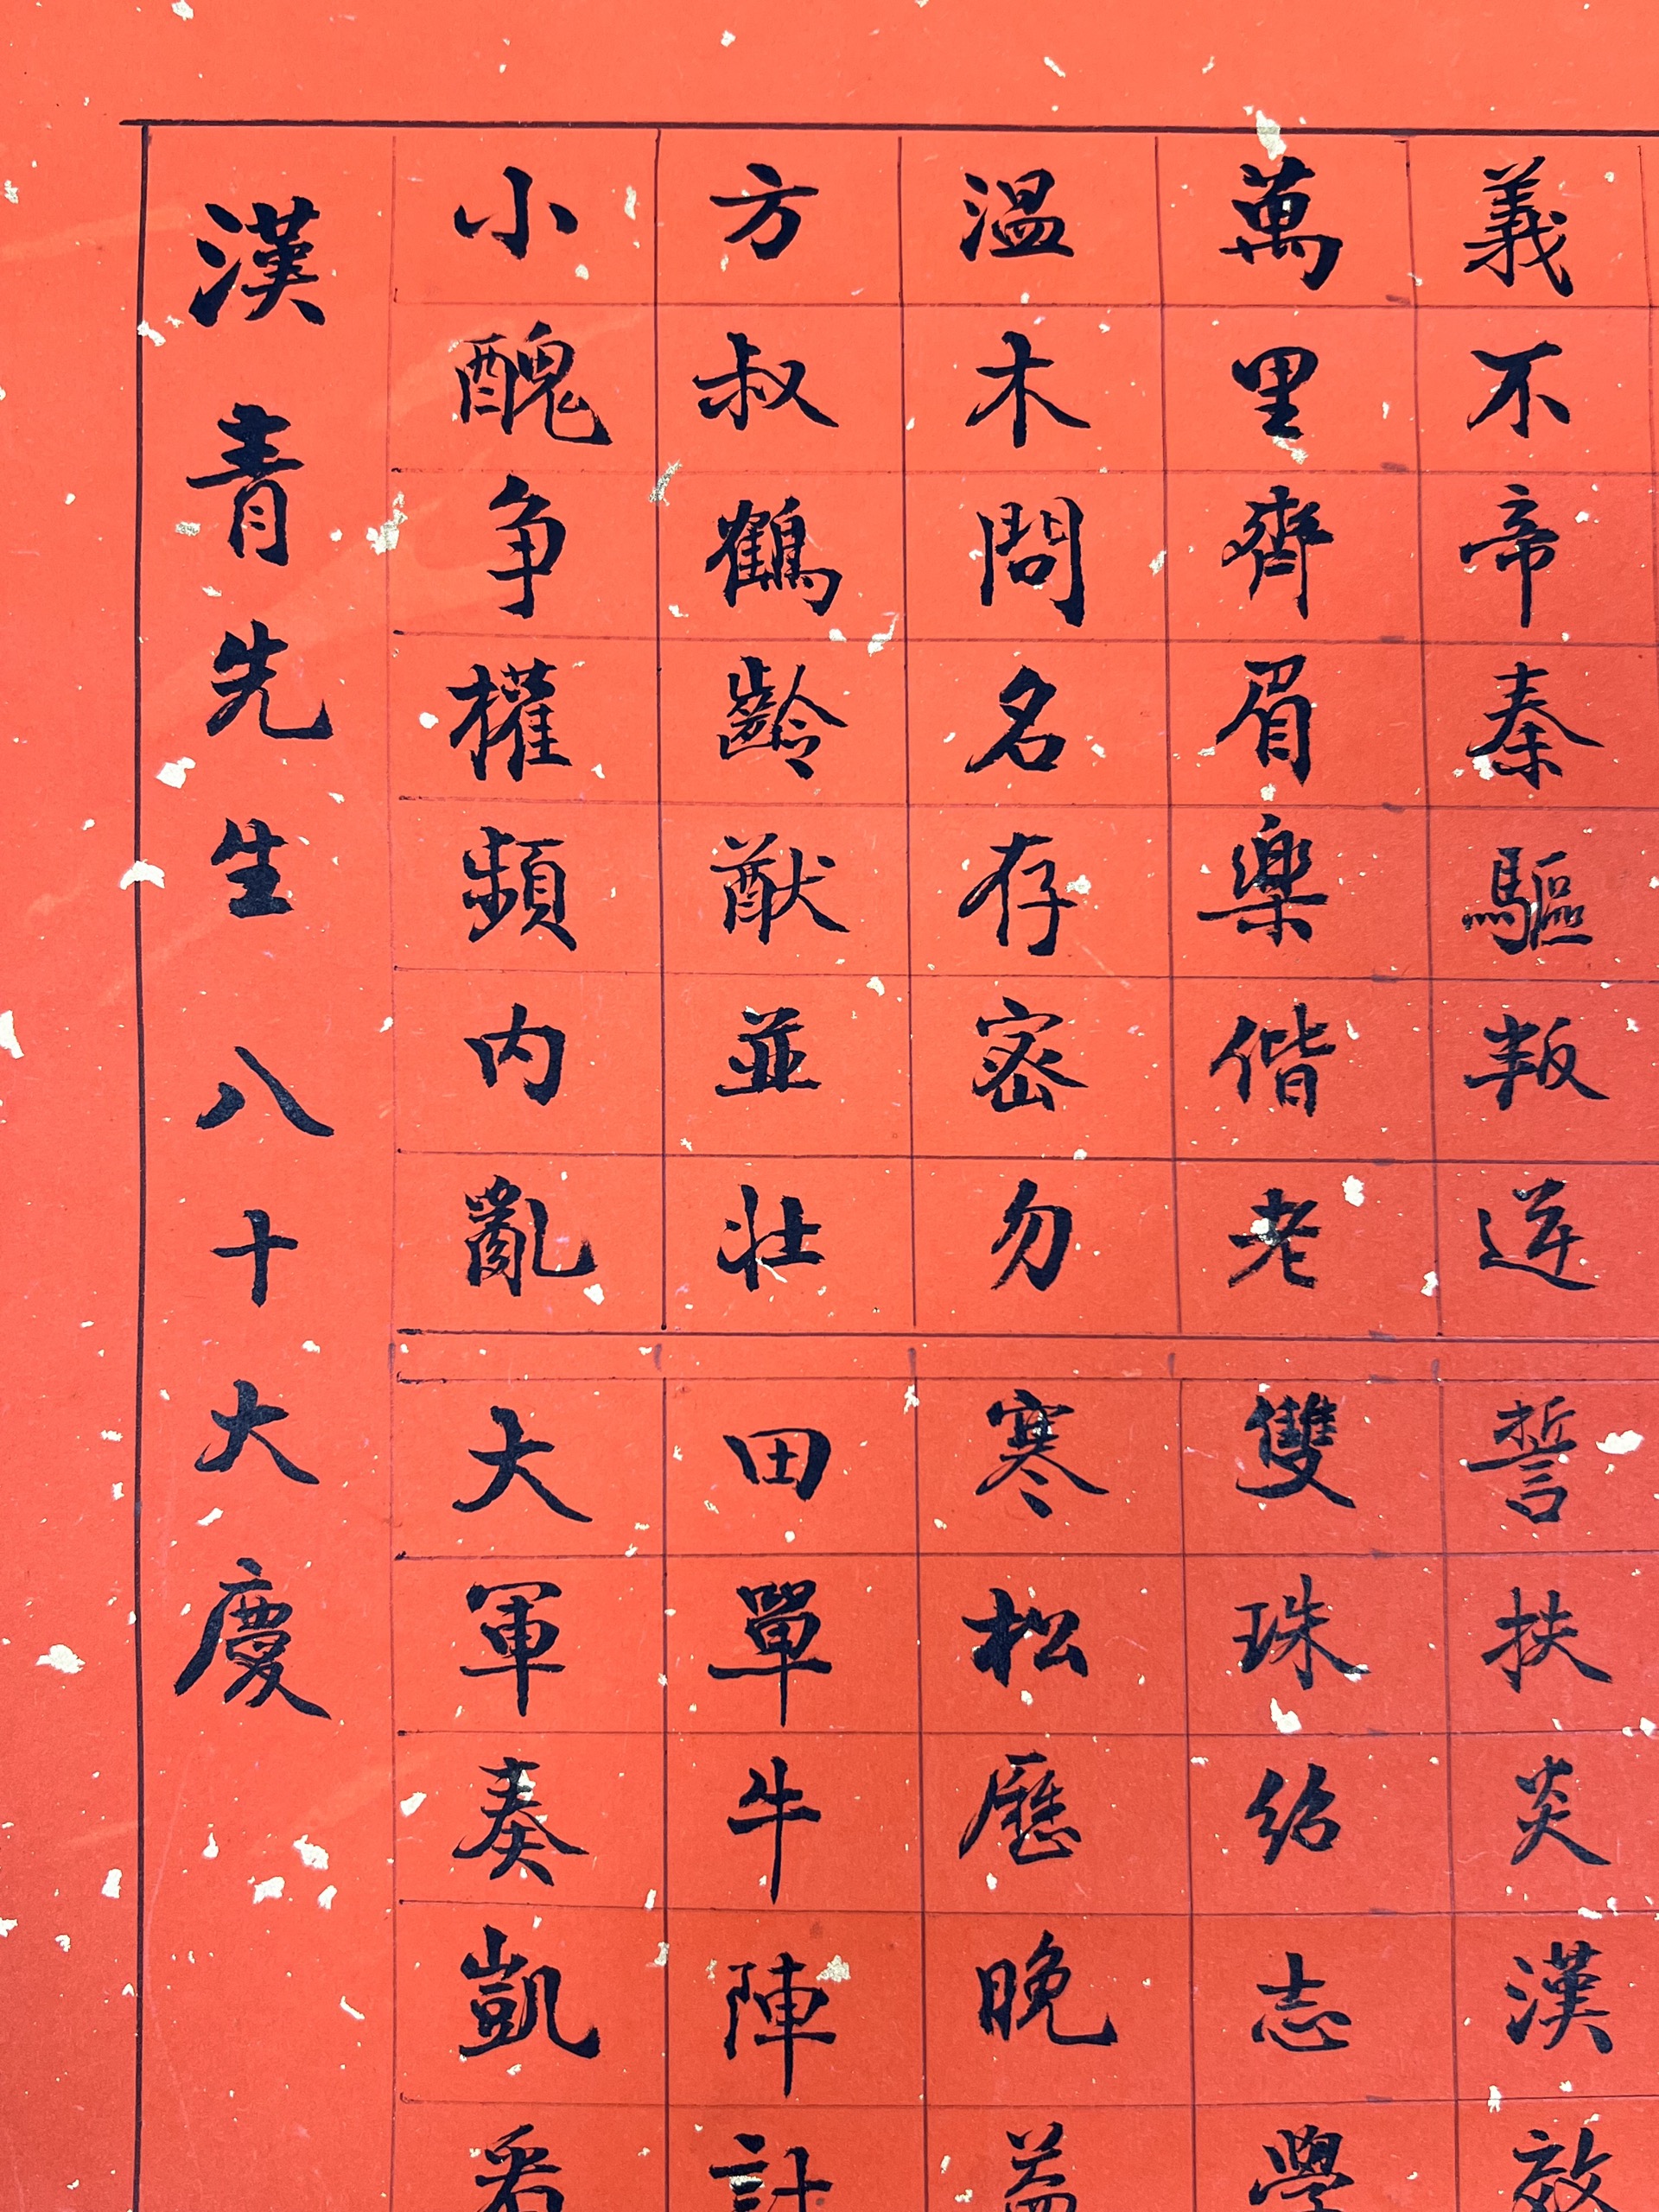 義不帝秦驅叛逆
誓扶炎漢效
萬里齊眉樂偕老
雙珠紹志學
温木問名存密勿
寒松歷晚益
方叔鶴齡猷並壯
田單牛陣計
小醜争權頻内亂
大軍奏凱看
漢青先生八十大慶